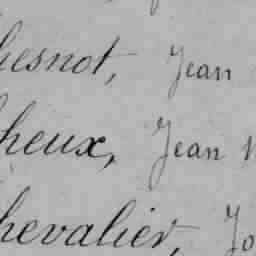 hesnot, Jean
heux, Jean
hevalier, Jo